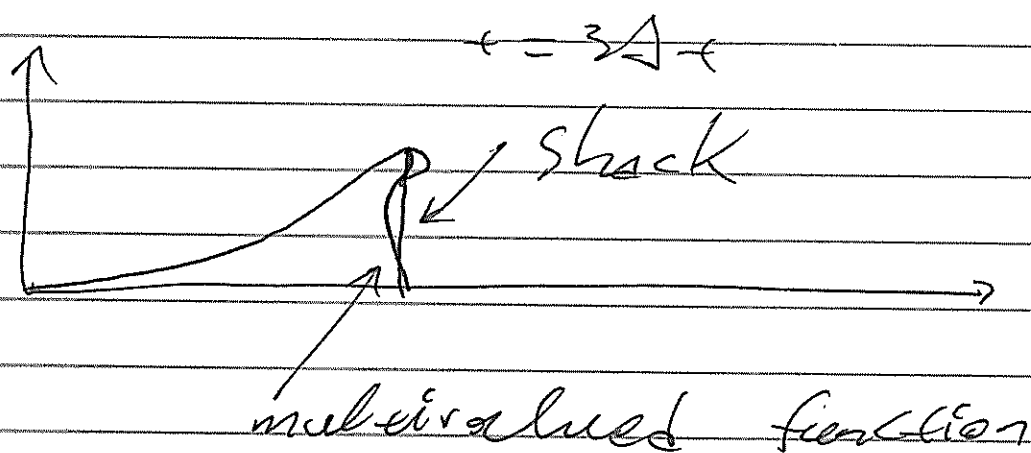 t = 3Δt
shock
multivalued function